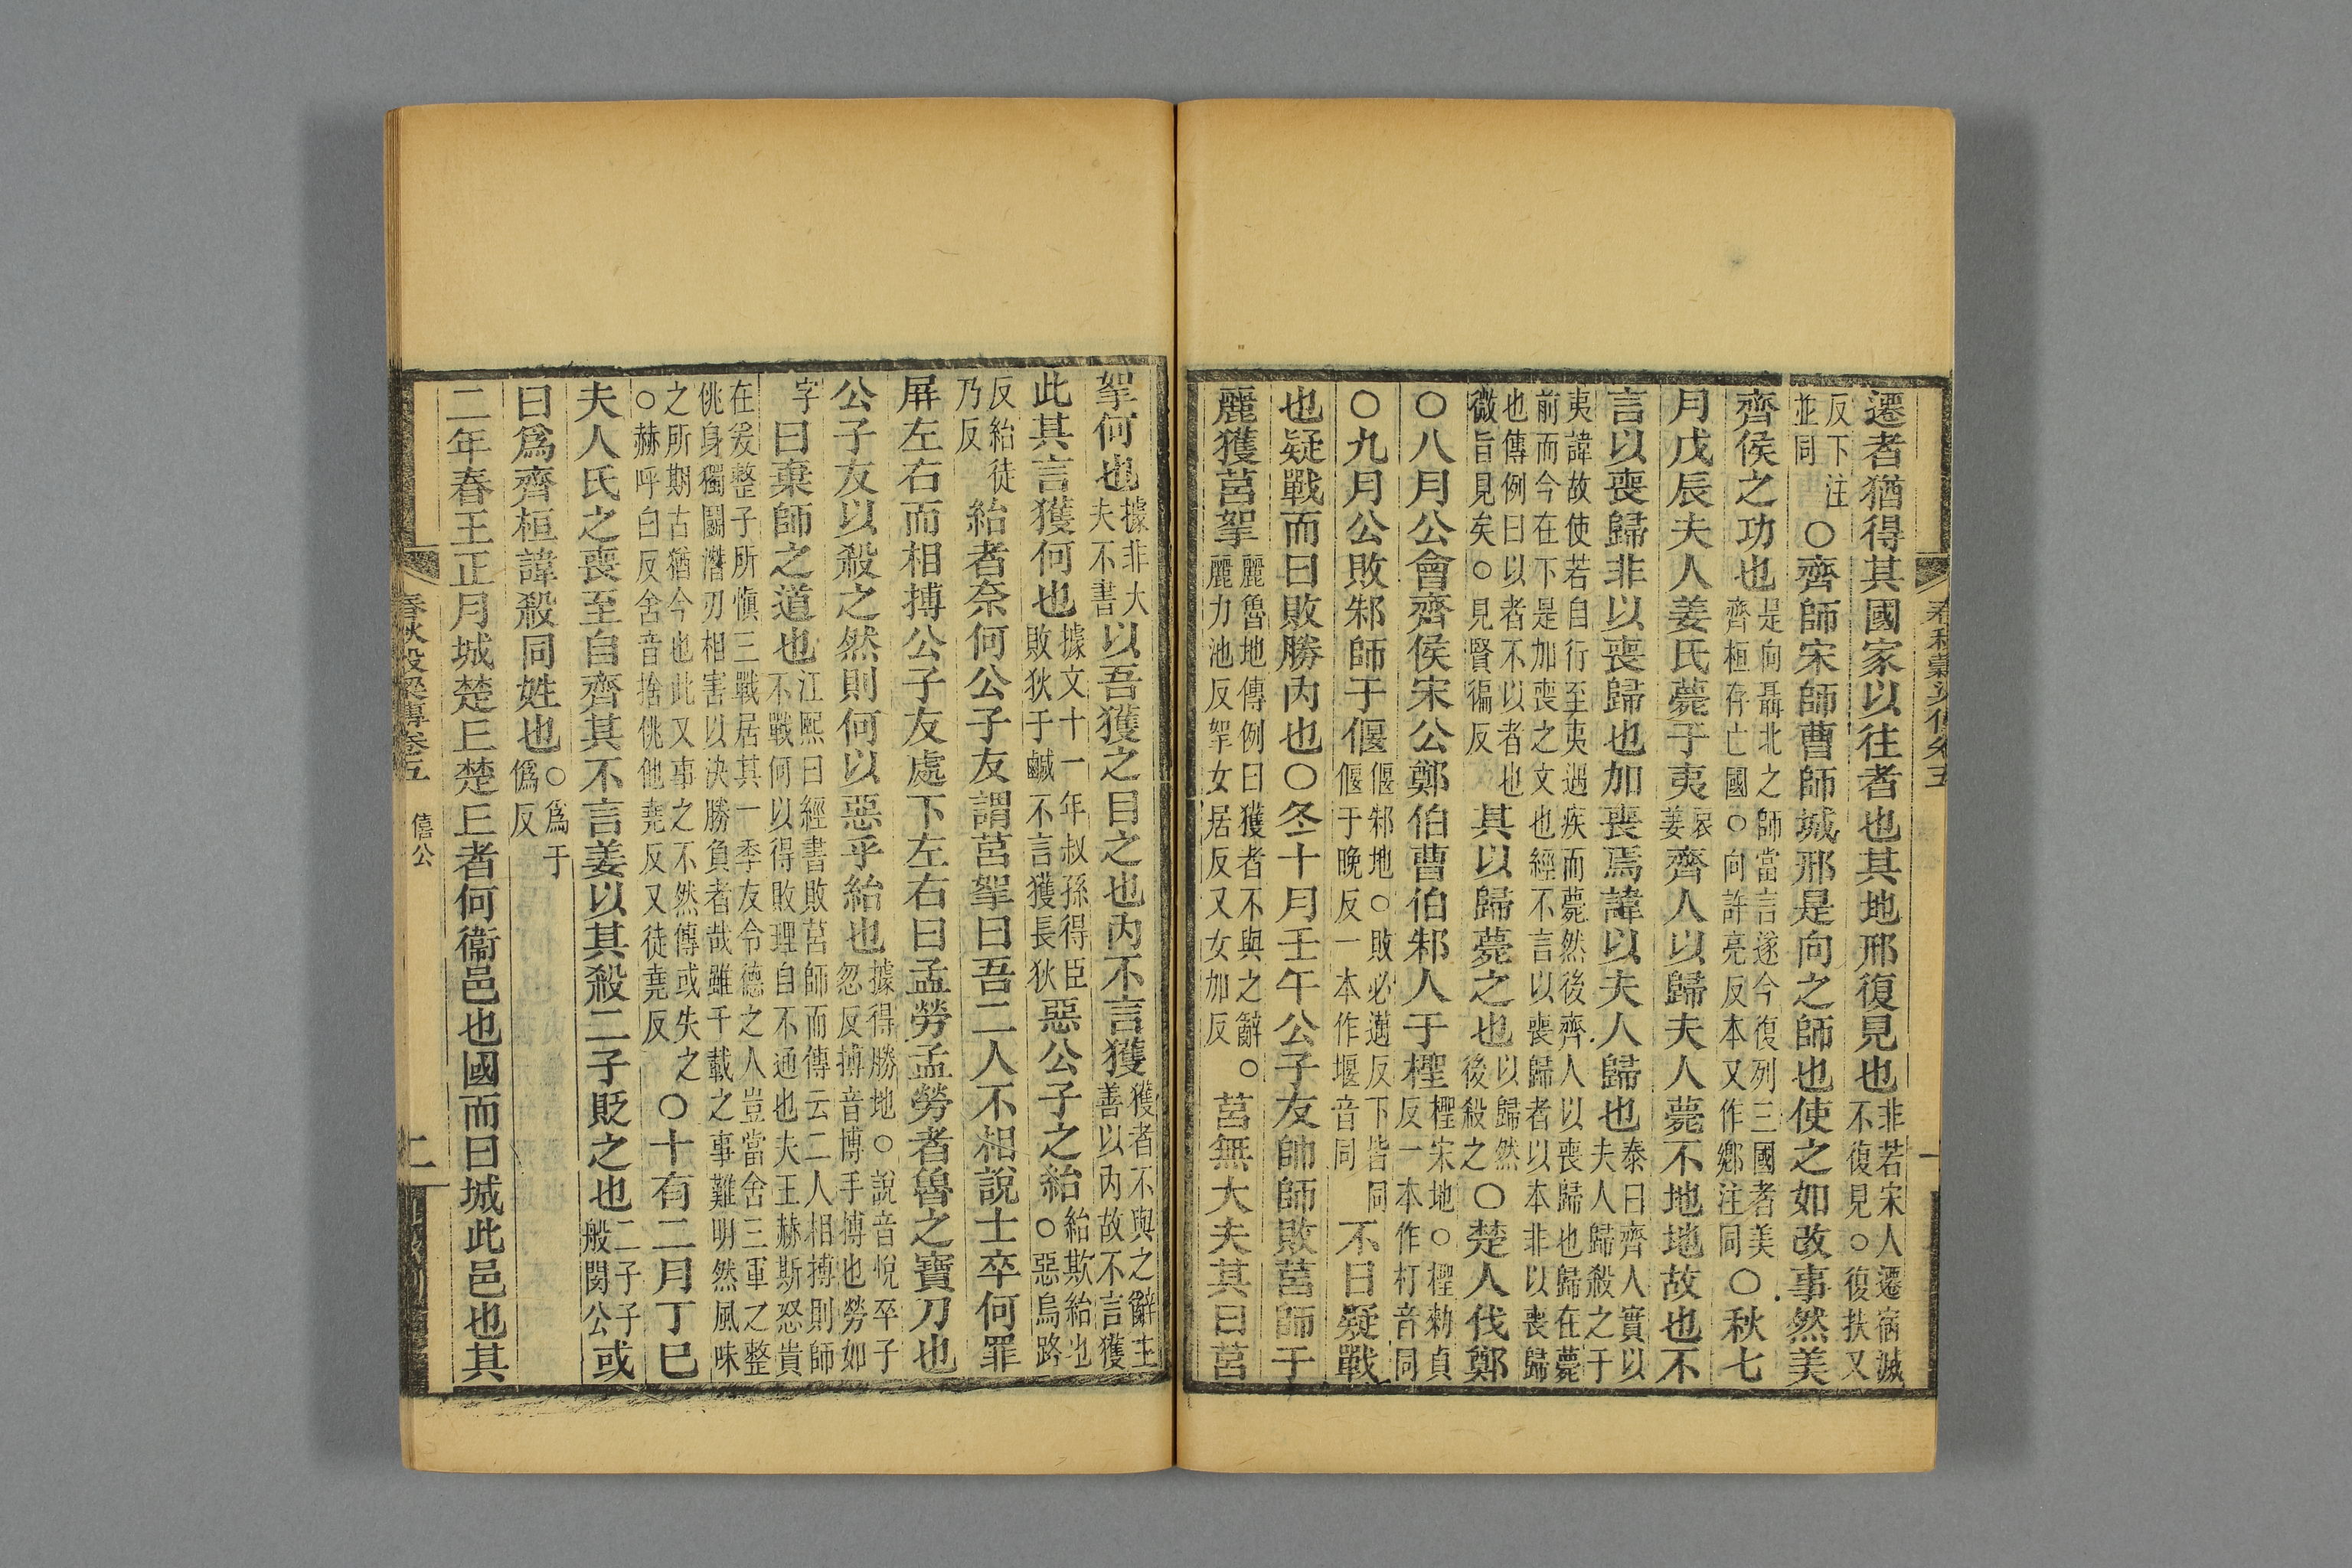 春秋穀梁傳卷五
一
遷者猶得其國家以往者也其地邢復見也非若宋人遷宿滅不復見○復扶又
反下注並同○齊師宋師曹師城邢是向之師也使之如改事然美
齊侯之功也是向聶北之師當言遂今復列三國者美齊桓存亡國○向許亮反本又作鄉注同○秋七
月戊辰夫人姜氏薨于夷夫人薨不地地故也不
言以喪歸非以喪歸也加喪焉諱以夫人歸也泰曰齊人實以夫人歸殺之于
夷諱故使若自行至夷遇疾而薨然後齊人以喪歸也歸在薨前而今在下是加喪之文也經不言以喪歸者以本非以喪歸
也傳例曰以者不以者也微旨見矣○見賢徧反其以歸薨之也以歸然後殺之○楚人伐鄭
○八月公會齊侯宋公鄭伯曹伯邾人于檉檉宋地○檉勑貞反一本作朾音同
○九月公敗邾師于偃偃邾地○敗必邁反下皆同偃于晚反一本作堰音同不日疑戰
也疑戰而曰敗勝內也○冬十月壬午公子友帥師敗莒師于
麗獲莒挐麗魯地傳例曰獲者不與之辭○麗力池反挐女居反又女加反莒無大夫其曰莒
挐何也據非大夫不書以吾獲之目之也內不言獲獲者不與之辭主善以內故不言獲
此其言獲何也據文十一年叔孫得臣敗狄于鹹不言獲長狄惡公子之紿紿欺紿也○惡烏路
反紿徒乃反紿者奈何公子友謂莒挐曰吾二人不相說士卒何罪
屏左右而相搏公子友處下左右曰孟勞孟勞者魯之寶刀也
公子友以殺之然則何以惡乎紿也據得勝地○說音悅卒子忽反搏音博手搏也勞如
字曰棄師之道也江熙曰經書敗莒師而傳云二人相搏則師不戰何以得敗理自不通也夫王赫斯怒貴
在爰整子所慎三戰居其一季友令德之人豈當舍三軍之整佻身獨鬭潛刃相害以決勝負者哉雖千載之事難明然風味
之所期古猶今也此又事之不然傳或失之○赫呼白反舍音捨佻他堯反又徒堯反○十有二月丁巳
夫人氏之喪至自齊其不言姜以其殺二子貶之也二子子般閔公或
曰爲齊桓諱殺同姓也○爲于僞反
二年春王正月城楚丘楚丘者何衞邑也國而曰城此邑也其
春秋穀梁傳卷五 僖公 二